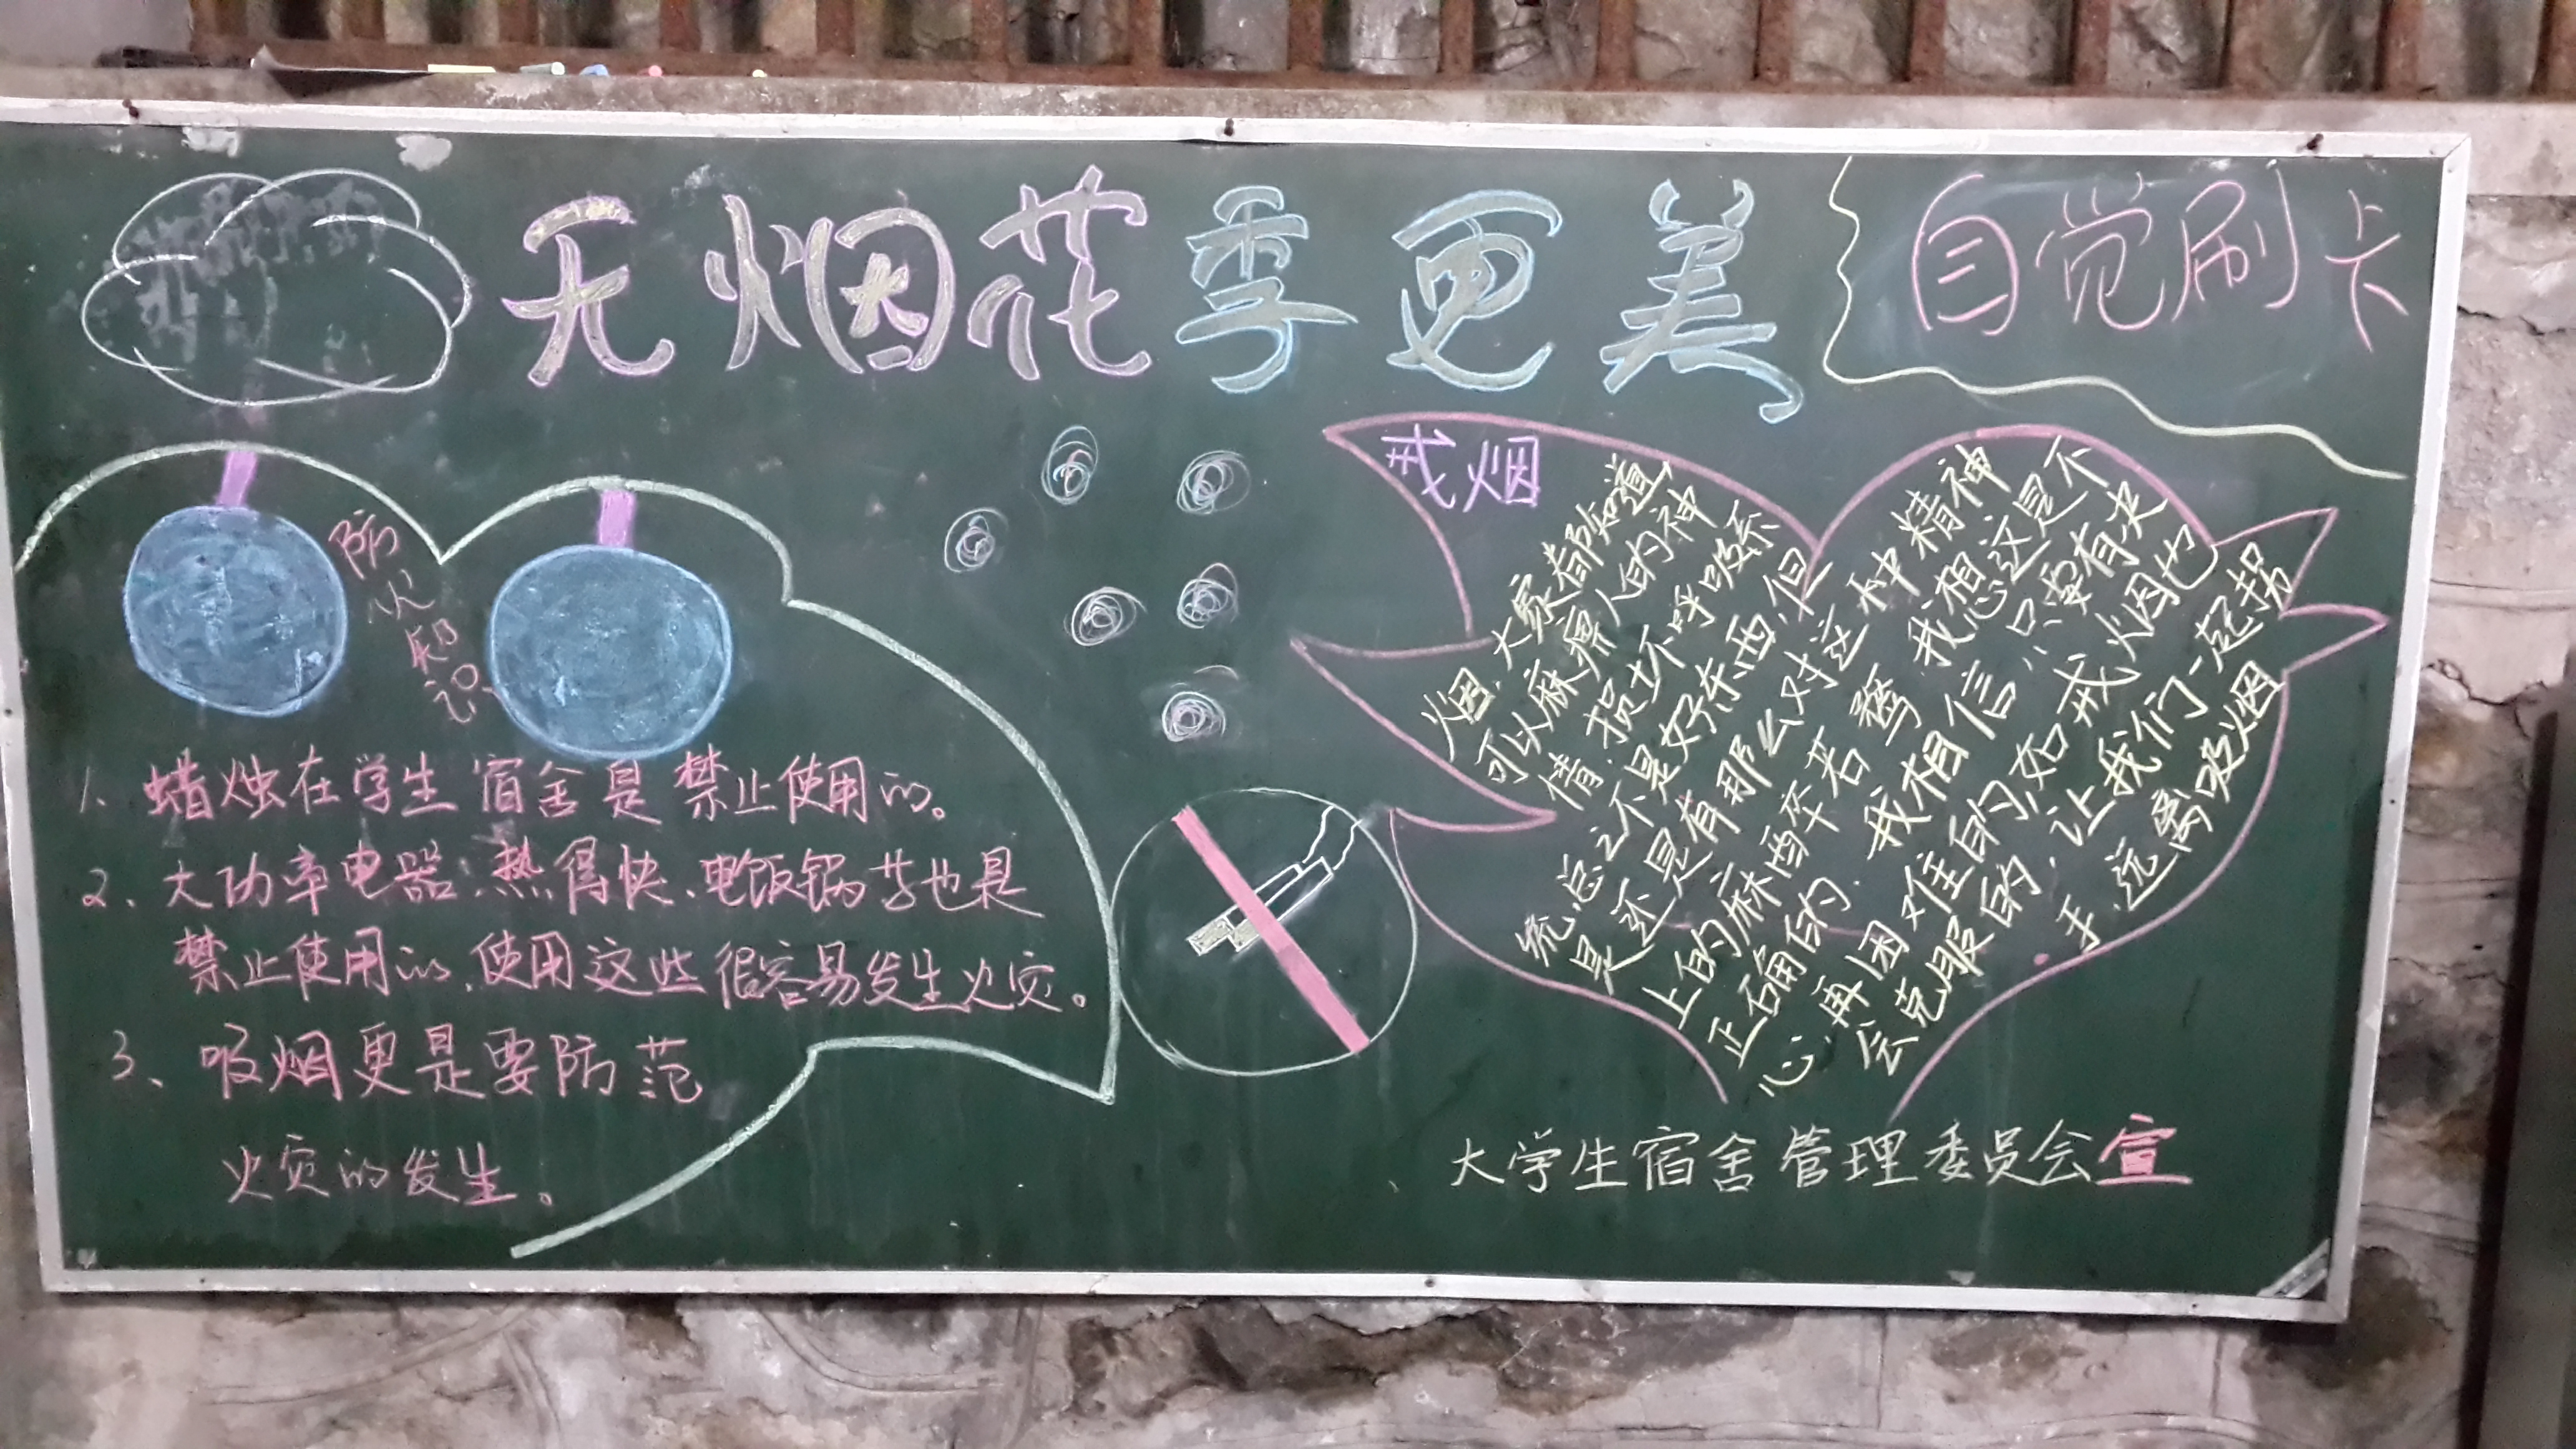 无烟花季更美
自觉刷卡
防火知识
1、蜡烛在学生宿舍是禁止使用的。
2、大功率电器:热得快、电饭锅等也是
禁止使用的,使用这些很容易发生火灾。
3、吸烟更是要防范
火灾的发生。
戒烟
烟,大家都知道,
可以麻痹人的神
情,损坏呼吸系
统,总之不是好东西,但
是还是有那么对这种精神
上的麻酒卒若鹜,我想这是不
正确的,我相信:只要有决
心,再困难的,如戒烟也
会克服的,让我们一起携
手,远离吸烟
大学生宿舍管理委员会宣